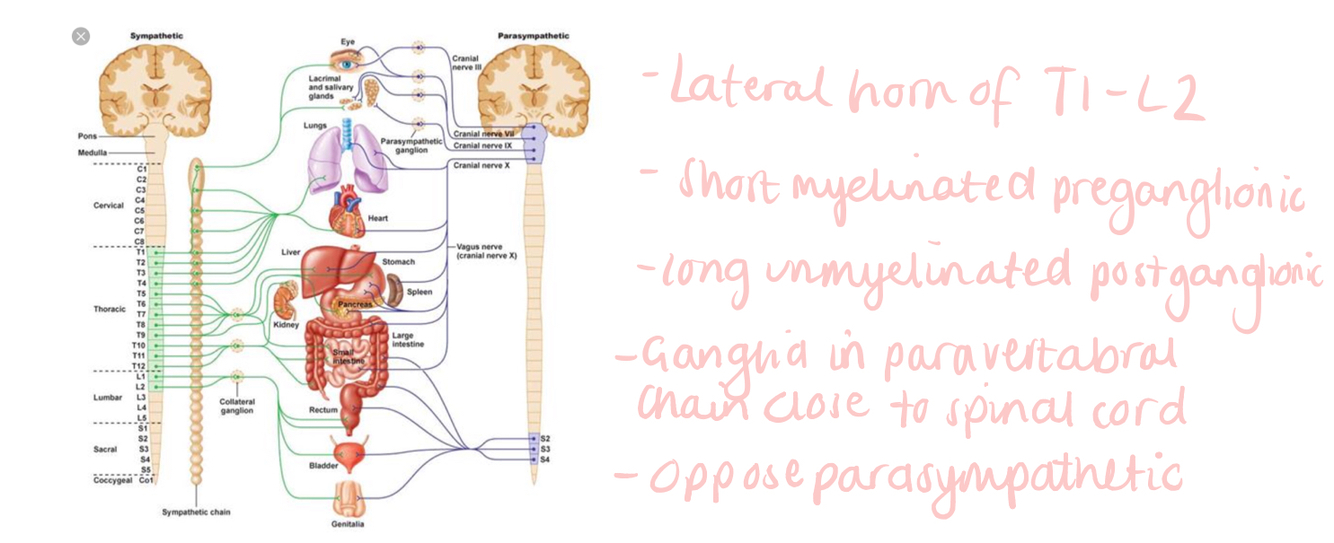 Sympathetic
Parasympathetic
Eye
Cranial
nerve III
Lacrimal
and salivary
glands
Lungs
Parasympathetic
ganglion
Cranial nerve VII
Cranial nerve IX
Cranial nerve X
Pons
Medulla
C1
C2
C3
C4
Cervical
C5
C6
C7
C8
Heart
T1
T2
T3
T4
T5
T6
Thoracic
T7
T8
T9
T10
T11
T12
Liver
Stomach
Vagus nerve
(cranial nerve X)
Spleen
Pancreas
Kidney
Large
intestine
Small
intestine
L1
L2
Lumbar
L3
L4
L5
Collateral
ganglion
Rectum
S1
S2
Sacral
S3
S4
S5
Coccygeal Co1
S2
S3
S4
Bladder
Sympathetic chain
Genitalia
- Lateral horn of T1-L2
- Short myelinated preganglionic
- long unmyelinated postganglionic
- Ganglia in paravertabral
Chain close to spinal cord
- Oppose parasympathetic